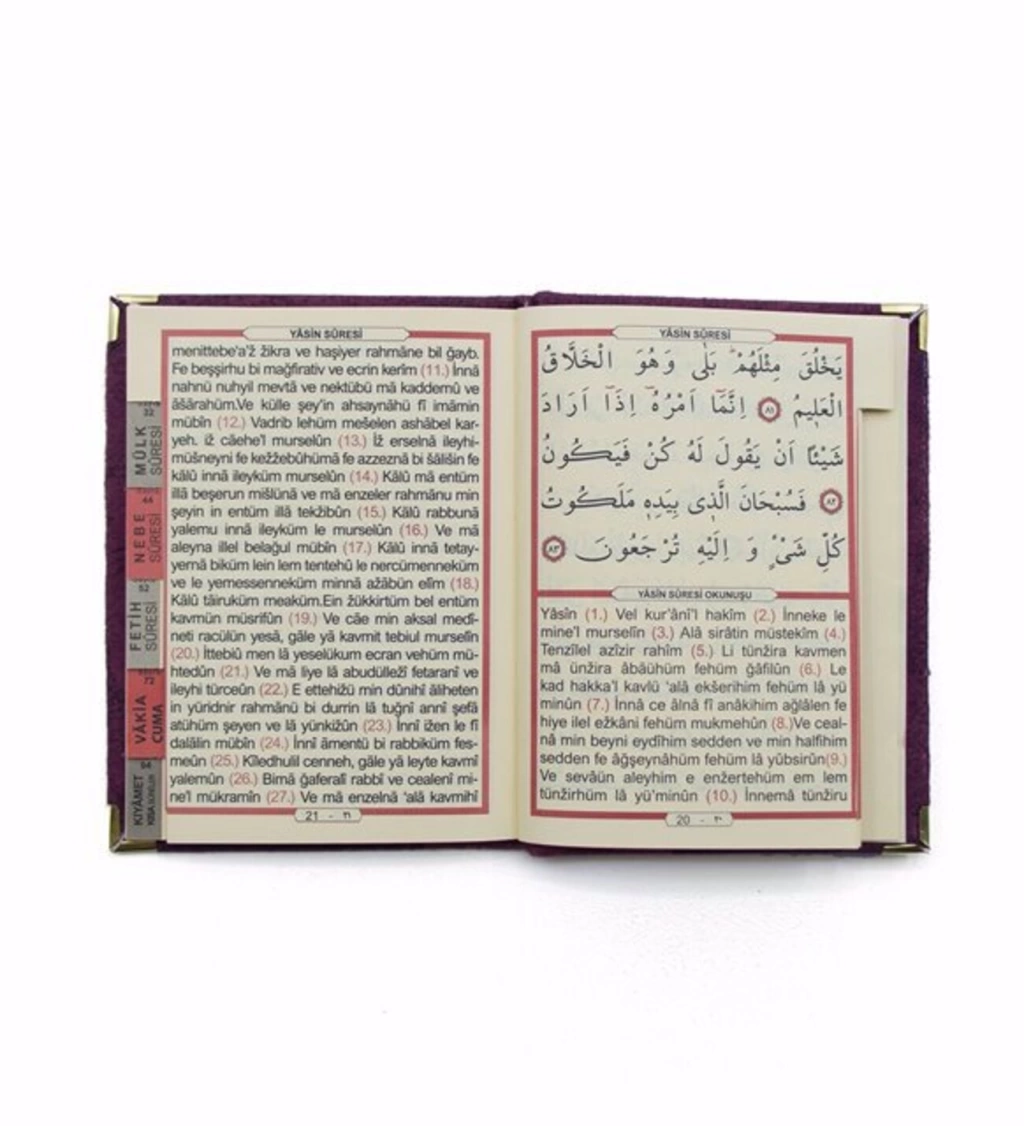 YÂSİN SÛRESİ
يَخْلُقَ مِثْلَهُمْ ۜ بَلٰى وَهُوَ الْخَلَّاقُ
الْعَل۪يمُ ﴿٨١﴾ اِنَّمَٓا اَمْرُهُٓ اِذَٓا اَرَادَ
شَيْـًٔا اَنْ يَقُولَ لَهُ كُنْ فَيَكُونُ
﴿٨٢﴾ فَسُبْحَانَ الَّذ۪ى بِيَدِه۪ مَلَكُوتُ
كُلِّ شَىْءٍ وَ اِلَيْهِ تُرْجَعُونَ ﴿٨٣﴾
YÂSİN SÛRESİ OKUNUŞU
Yâsîn (1.) Vel kur'âni'l hakîm (2.) İnneke le
mine'l murselîn (3.) Alâ sirâtin müstekîm (4.)
Tenzîlel azîzir rahîm (5.) Li tünžira kavmen
mâ ünžira âbâühüm fehüm ğâfilûn (6.) Le
kad hakka'l kavlü 'alâ ekšerihim fehüm lâ yü
minûn (7.) İnnâ ce âlnâ fî anâkihim ağlâlen fe
hiye ilel ežkâni fehüm mukmehûn (8.)Ve ceal-
nâ min beyni eydîhim sedden ve min halfihim
sedden fe âğşeynâhüm fehüm lâ yûbsirûn(9.)
Ve sevâün aleyhim e enžertehüm em lem
tünžirhüm lâ yü'minûn (10.) İnnemâ tünžiru
20 - ٢٠
YÂSİN SÛRESİ
menittebe'a'ž žikra ve haşiyer rahmâne bil ğayb.
Fe beşşirhu bi mağfirativ ve ecrin kerîm (11.) İnnâ
nahnü nuhyil mevtâ ve nektübü mâ kaddemû ve
âšârahüm.Ve külle şey'in ahsaynâhü fî imâmin
mübîn (12.) Vadrib lehüm mešelen ashâbel kar-
yeh. iž câehe'l murselûn (13.) İž erselnâ ileyhi-
müšneyni fe kežžebûhümâ fe azzeznâ bi šâlišin fe
kâlû innâ ileyküm murselûn (14.) Kâlû mâ entüm
illâ beşerun mišlünâ ve mâ enzeler rahmânu min
şeyin in entüm illâ tekžibûn (15.) Kâlû rabbunâ
yalemu innâ ileyküm le murselûn (16.) Ve mâ
aleyna illel belağul mübîn (17.) Kâlû innâ tetay-
yernâ biküm lein lem tentehû le nercümenneküm
ve le yemessenneküm minnâ ažâbün elîm (18.)
Kâlû tâiruküm meaküm.Ein žükkirtüm bel entüm
kavmün müsrifûn (19.) Ve câe min aksal medî-
neti racülün yesâ, gâle yâ kavmit tebiul murselîn
(20.) İttebiû men lâ yeselükum ecran vehüm mü-
htedûn (21.) Ve mâ liye lâ abudülležî fetaranî ve
ileyhi türceûn (22.) E ettehižü min dûnihî âliheten
in yüridnir rahmânü bi durrin lâ tuğnî annî şefâ
atühüm şeyen ve lâ yünkizûn (23.) İnnî ižen le fî
dalâlin mübîn (24.) İnnî âmentü bi rabbiküm fes-
meûn (25.) Kîledhulil cenneh, gâle yâ leyte kavmî
yalemûn (26.) Bimâ ğaferalî rabbî ve cealenî mi-
ne'l mükramîn (27.) Ve mâ enzelnâ 'alâ kavmihî
21 - ٢١
32
MÜLK
SÛRESİ
44
NEBE
SÛRESİ
52
FETİH
SÛRESİ
72
VÂKİA
CUMA
94
KIYÂMET
KISA SÛRELER